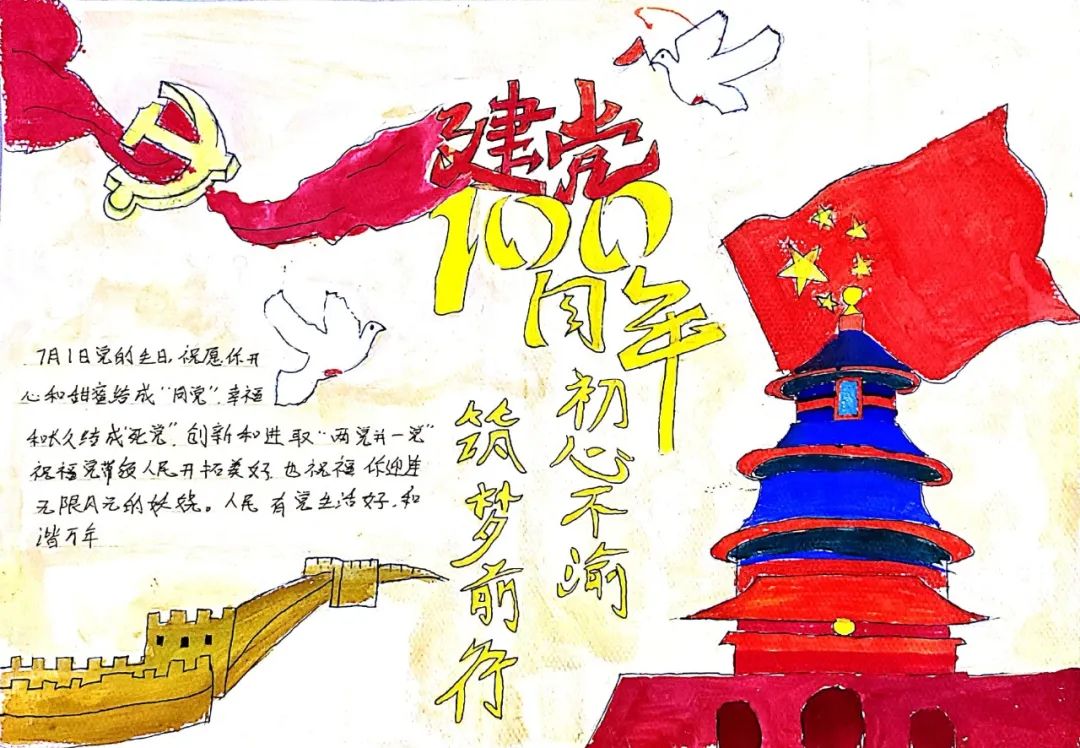 建党
100
周年
初心不渝
筑梦前行
7月1日党的生日,祝愿你开
心和甜蜜结成“同党”,幸福
和长久结成“死党”,创新和进取“两党并一党”
祝福党带领人民开拓美好,也祝福你迎
无限的妖娆。人民有党生活好,和
谐万年